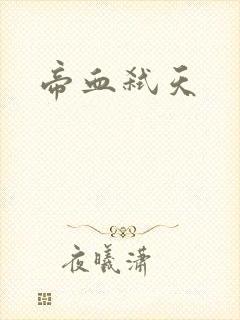 帝血弑天
夜曦潇